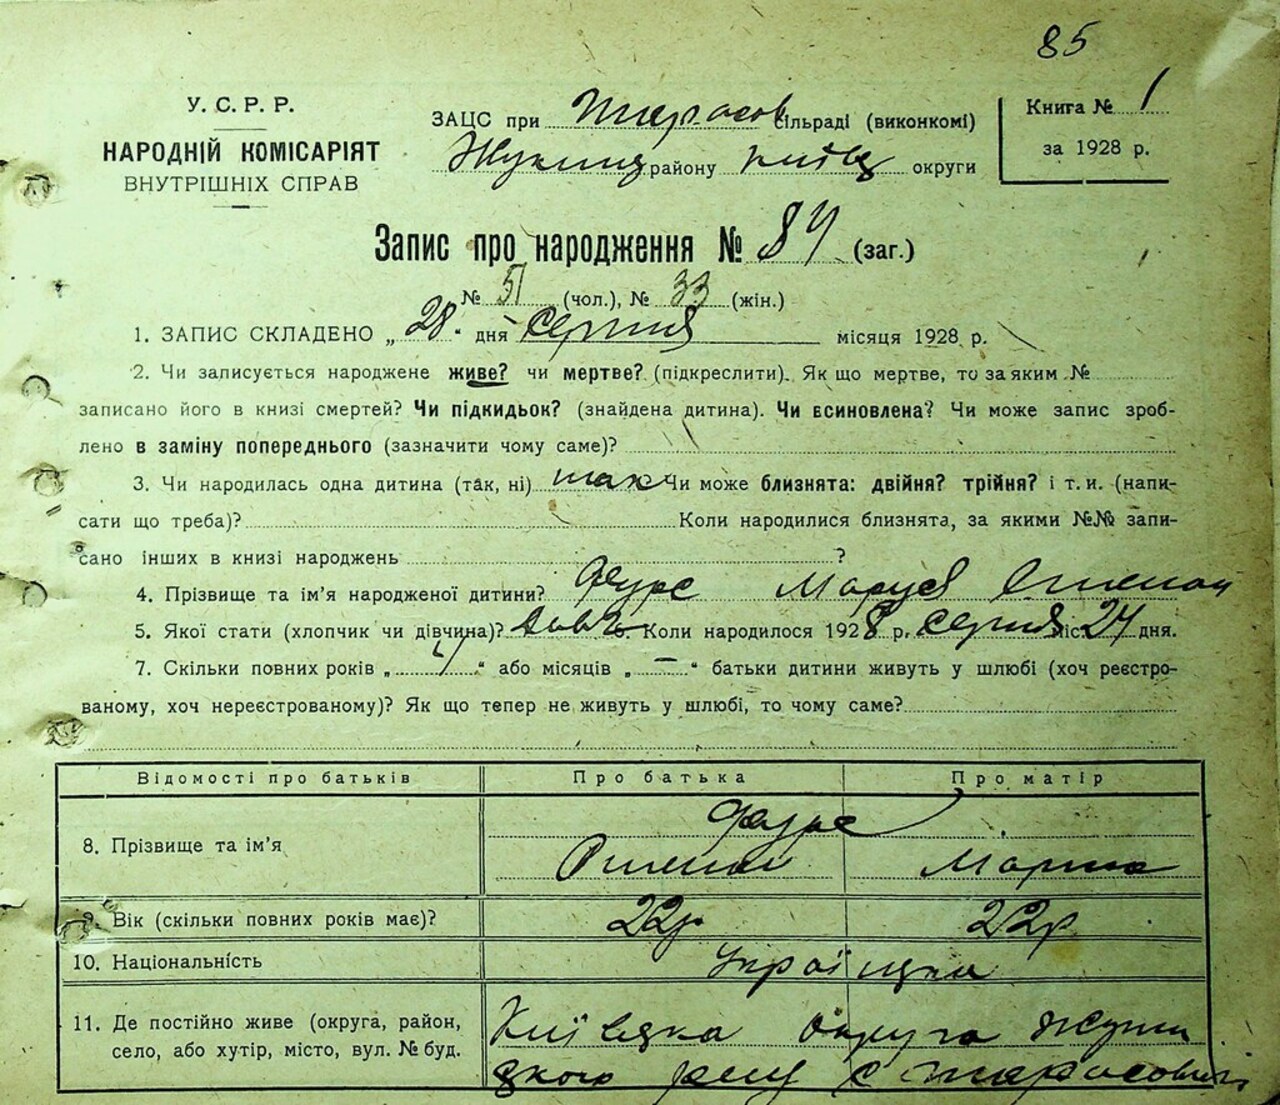 85
У. С. Р. Р.
НАРОДНІЙ КОМІСАРІЯТ
ВНУТРІШНІХ СПРАВ
ЗАЦС при Тарасов сільраді (виконкомі)
району Київ округи
Книга № 1
за 1928 р.
Запис про народження № 84 (заг.)
№ 51 (чол.), № 33 (жін.)
1. ЗАПИС СКЛАДЕНО „ 28 “ дня серпня місяця 1928 р.
2. Чи записується народжене живе? чи мертве? (підкреслити). Як що мертве, то за яким №
записано його в книзі смертей? Чи підкидьок? (знайдена дитина). Чи всиновлена? Чи може запис зроб-
лено в заміну попереднього (зазначити чому саме)?
3. Чи народилась одна дитина (так, ні) так Чи може близнята: двійня? трійня? і т. и. (напи-
сати що треба)? Коли народилися близнята, за якими №№ запи-
сано інших в книзі народжень ?
4. Прізвище та ім’я народженої дитини? Фурс Маруся
5. Якої стати (хлопчик чи дівчина)? Дівч. Коли народилося 1928 р. серпня міс. 24 дня.
7. Скільки повних років „ 4 “ або місяців „ — “ батьки дитини живуть у шлюбі (хоч реєстро-
ваному, хоч нереєстрованому)? Як що тепер не живуть у шлюбі, то чому саме?
Відомості про батьків Про батька Про матір
8. Прізвище та ім’я Фурс
Марина
9. Вік (скільки повних років має)? 22р 22р
10. Національність Українци
11. Де постійно живе (округа, район,
село, або хутір, місто, вул. № буд.
Київська округа Жукин
ського р-ну с. Тарасовичі